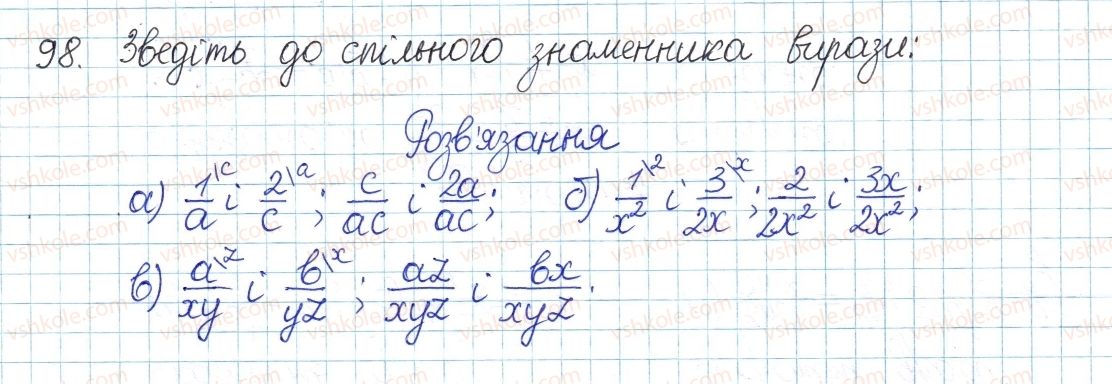 98. Зведіть до спільного знаменника вирази:
Розв'язання
а) 1\c/a і 2\a/c; c/ac і 2a/ac; б) 1\2/x² і 3\x/2x; 2/2x² і 3x/2x²;
в) a\z/xy і b\x/yz; az/xyz і bx/xyz.